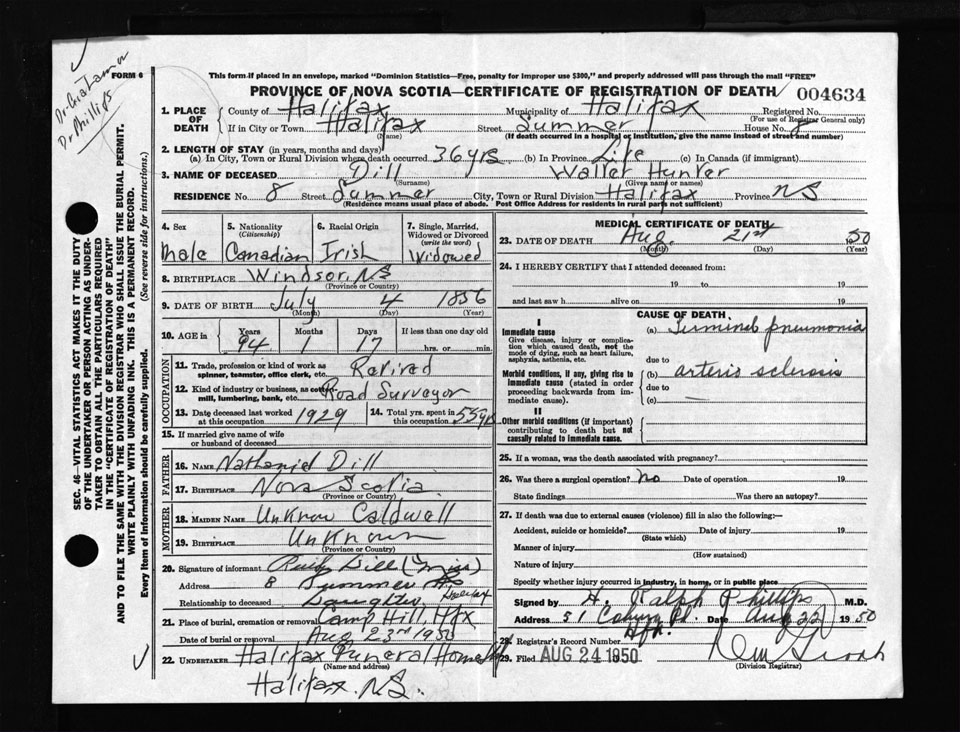 Dr Phillips
FORM 6
This form if placed in an envelope, marked "Dominion Statistics—Free, penalty for improper use $300," and properly addressed will pass through the mail "FREE"
PROVINCE OF NOVA SCOTIA—CERTIFICATE OF REGISTRATION OF DEATH 004634
1. PLACE OF DEATH County of Halifax Municipality of Halifax Registered No.
(For use of Registrar General only)
If in City or Town Halifax Street Summer House No. 8
(Name) (If death occurred in a hospital or institution, give the name instead of street and number)
2. LENGTH OF STAY (in years, months and days)
(a) In City, Town or Rural Division where death occurred 36 yrs (b) In Province Life (c) In Canada (if immigrant)
3. NAME OF DECEASED Dill Walter Hunter
(Surname) (Given name or names)
RESIDENCE No. 8 Street Summer City, Town or Rural Division Halifax Province NS
(Residence means usual place of abode. Post Office Address for residents in rural parts not sufficient)
4. Sex 5. Nationality (Citizenship) 6. Racial Origin 7. Single, Married, Widowed or Divorced (write the word)
Male Canadian Irish Widowed
8. BIRTHPLACE Windsor, NS
(Province or Country)
9. DATE OF BIRTH July 4 1856
(Month) (Day) (Year)
10. AGE in Years Months Days If less than one day old
94 1 17 hrs. or min.
OCCUPATION
11. Trade, profession or kind of work as spinner, teamster, office clerk, etc. Retired
12. Kind of industry or business, as cotton mill, lumbering, bank, etc. Road Surveyor
13. Date deceased last worked at this occupation 1929 14. Total yrs. spent in this occupation 55 yrs
15. If married give name of wife or husband of deceased
FATHER
16. NAME Nathaniel Dill
17. BIRTHPLACE Nova Scotia
(Province or Country)
MOTHER
18. MAIDEN NAME Unknow Caldwell
19. BIRTHPLACE Unknown
(Province or Country)
20. Signature of informant Ruby Dill (Miss)
Address 8 Summer St
Halifax
Relationship to deceased Daughter
21. Place of burial, cremation or removal Camp Hill, Hfx
Date of burial or removal Aug 23rd 1950
22. UNDERTAKER Halifax Funeral Home
(Name and address)
Halifax. NS.
MEDICAL CERTIFICATE OF DEATH
23. DATE OF DEATH Aug. 21st 1950
(Month) (Day) (Year)
24. I HEREBY CERTIFY that I attended deceased from:
19 to 19
and last saw h alive on 19
CAUSE OF DEATH
I
Immediate cause (a) Terminal pneumonia
Give disease, injury or complication which caused death, not the mode of dying, such as heart failure, asphyxia, asthenia, etc.
due to
Morbid conditions, if any, giving rise to immediate cause (stated in order proceeding backwards from immediate cause). (b) arterio sclerosis
due to
(c) —
II
Other morbid conditions (if important) contributing to death but not causally related to immediate cause.
25. If a woman, was the death associated with pregnancy?
26. Was there a surgical operation? No Date of operation 19
State findings Was there an autopsy?
27. If death was due to external causes (violence) fill in also the following:—
Accident, suicide or homicide? Date of injury 19
(State which)
Manner of injury
(How sustained)
Nature of injury
Specify whether injury occurred in industry, in home, or in public place
Signed by H. Ralph Phillips M.D.
Address 51 Coburg Rd. Date Aug 22 1950
Hfx.
28. Registrar's Record Number
29. Filed AUG 24 1950
(Division Registrar)
SEC. 46—VITAL STATISTICS ACT MAKES IT THE DUTY
OF THE UNDERTAKER OR PERSON ACTING AS UNDER-
TAKER TO OBTAIN ALL THE PARTICULARS REQUIRED
IN THE "CERTIFICATE OF REGISTRATION OF DEATH"
AND TO FILE THE SAME WITH THE DIVISION REGISTRAR WHO SHALL ISSUE THE BURIAL PERMIT.
WRITE PLAINLY WITH UNFADING INK. THIS IS A PERMANENT RECORD.
Every item of Information should be carefully supplied. (See reverse side for instructions.)